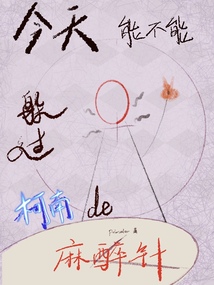 今天
能不能
躲过
柯南 de
麻醉针